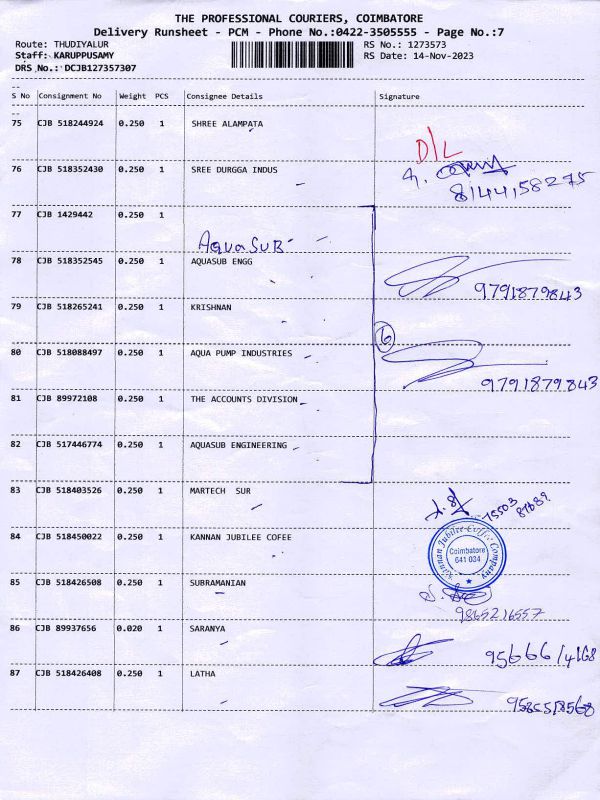 THE PROFESSIONAL COURIERS, COIMBATORE
Delivery Runsheet - PCM - Phone No.:0422-3505555 - Page No.:7
Route: THUDIYALUR RS No.: 1273573
Staff: KARUPPUSAMY RS Date: 14-Nov-2023
DRS No.: DCJB127357307
S No Consignment No Weight PCS Consignee Details Signature
75 CJB 518244924 0.250 1 SHREE ALAMPATA
D/L
76 CJB 518352430 0.250 1 SREE DURGGA INDUS
8144158275
77 CJB 1429442 0.250 1
AquaSUB
78 CJB 518352545 0.250 1 AQUASUB ENGG
9791879843
79 CJB 518265241 0.250 1 KRISHNAN
6
80 CJB 518088497 0.250 1 AQUA PUMP INDUSTRIES
9791879843
81 CJB 89972108 0.250 1 THE ACCOUNTS DIVISION
82 CJB 517446774 0.250 1 AQUASUB ENGINEERING
83 CJB 518403526 0.250 1 MARTECH SUR
75503
84 CJB 518450022 0.250 1 KANNAN JUBILEE COFEE
Kannan Jubilee Coffee Company
Coimbatore
641 034
85 CJB 518426508 0.250 1 SUBRAMANIAN
9865216557
86 CJB 89937656 0.020 1 SARANYA
95666/4168
87 CJB 518426408 0.250 1 LATHA
9585518568